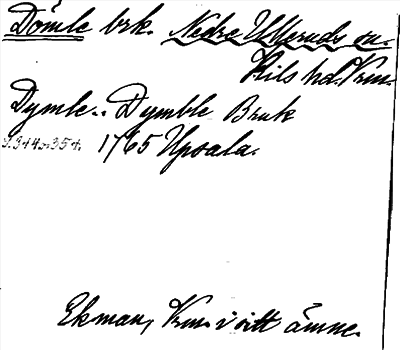 Dömle brk. Nedre Ulleruds sn.
Kils hd. Vrm.
Dymle.. Dymble Bruk
s. 344, 354. 1765 Upsala.
Ekman, Vrm. i sitt ämne.